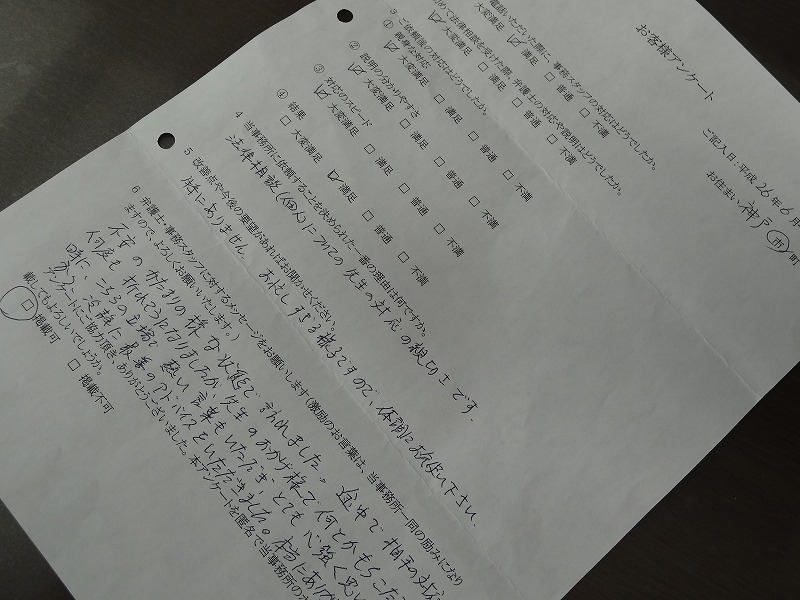 お客様アンケート
ご記入日:平成26年6月
お住まい 神戸 市 町
電話いただいた際に、事務スタッフの対応はどうでしたか。
□ 大変満足 ☑ 満足 □ 普通 □ 不満
めて法律相談を受けた際、弁護士の対応や説明はどうでしたか。
☑ 大変満足 □ 満足 □ 普通 □ 不満
3 ご依頼後の対応はどうでしたか。
① 親身な対応
☑ 大変満足 □ 満足 □ 普通 □ 不満
② 説明の分かりやすさ
☑ 大変満足 □ 満足 □ 普通 □ 不満
③ 対応のスピード
☑ 大変満足 □ 満足 □ 普通 □ 不満
④ 結果
□ 大変満足 ☑ 満足 □ 普通 □ 不満
4 当事務所に依頼することを決められた一番の理由は何ですか。
法律相談(個人)についての先生の対応の親切さです。
5 改善点や今後の要望があればお聞かせください。
特にありません。お忙しすぎる様子ですので、体調にお気使い下さい。
6 弁護士・事務スタッフに対するメッセージをお願いします(激励のお言葉は、当事務所一同の励みになり
ますので、よろしくお願いいたします。)
不安のかたまりの様な状態で訪れました。途中で相手の対応
何度も折れそうになりましたが、先生のおかげ様で何とかもちこた
時に、こちらの立場で熱い言葉もいただき、とても心強く思い
冷静に最善のアドバイスをいただきました。本当にあり
アンケートにご協力頂き、ありがとうございました。本アンケートを匿名で当事務所の
載してもよろしいでしょうか。
□ 掲載可 □ 掲載不可